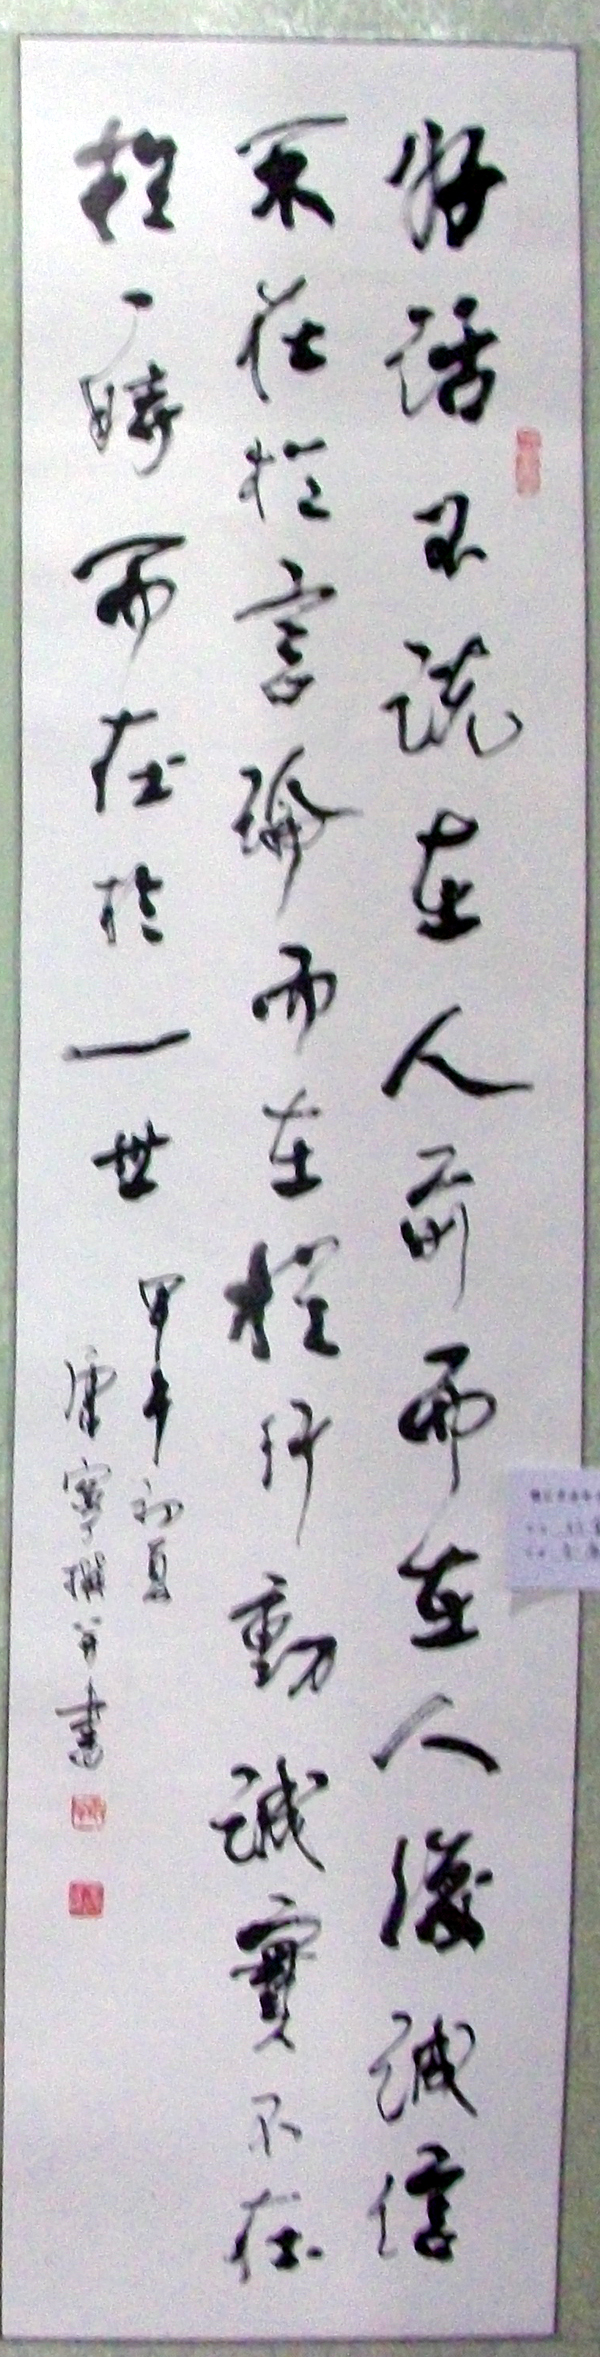 好話不說在人前而在人後誠信
不在於言論而在於行動誠實不在
於一時而在於一世
甲午初夏
康寧撰並書